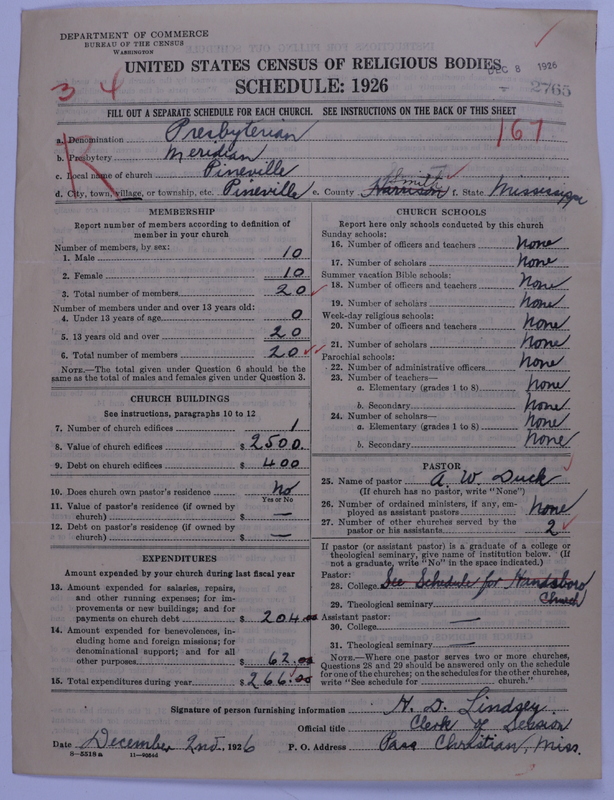 DEPARTMENT OF COMMERCE
BUREAU OF THE CENSUS
WASHINGTON
UNITED STATES CENSUS OF RELIGIOUS BODIES
DEC 8 1926
SCHEDULE: 1926
2765
3 4
FILL OUT A SEPARATE SCHEDULE FOR EACH CHURCH. SEE INSTRUCTIONS ON THE BACK OF THIS SHEET
167
R
a. Denomination Presbyterian
b. Presbytery Meridian
c. Local name of church Pineville
d. City, town, village, or township, etc. Pineville e. County Harrison Smith f. State Mississippi
MEMBERSHIP
Report number of members according to definition of
member in your church
Number of members, by sex:
1. Male 10
2. Female 10
3. Total number of members 20
Number of members under and over 13 years old:
4. Under 13 years of age 0
5. 13 years old and over 20
6. Total number of members 20
NOTE.—The total given under Question 6 should be the
same as the total of males and females given under Question 3.
CHURCH BUILDINGS
See instructions, paragraphs 10 to 12
7. Number of church edifices 1
8. Value of church edifices $ 2500.
9. Debt on church edifices $ 400
10. Does church own pastor's residence No
Yes or No
11. Value of pastor's residence (if owned by
church) $ —
12. Debt on pastor's residence (if owned by
church) $ —
EXPENDITURES
Amount expended by your church during last fiscal year
13. Amount expended for salaries, repairs,
and other running expenses; for im-
provements or new buildings; and for
payments on church debt $ 204.00
14. Amount expended for benevolences, in-
cluding home and foreign missions; for
denominational support; and for all
other purposes $ 62.00
15. Total expenditures during year $ 266.00
CHURCH SCHOOLS
Report here only schools conducted by this church
Sunday schools:
16. Number of officers and teachers None
17. Number of scholars None
Summer vacation Bible schools:
18. Number of officers and teachers None
19. Number of scholars None
Week-day religious schools:
20. Number of officers and teachers None
21. Number of scholars None
Parochial schools:
22. Number of administrative officers None
23. Number of teachers—
a. Elementary (grades 1 to 8) None
b. Secondary None
24. Number of scholars—
a. Elementary (grades 1 to 8) None
b. Secondary None
PASTOR
25. Name of pastor A. W. Duck
(If church has no pastor, write "None")
26. Number of ordained ministers, if any, em-
ployed as assistant pastors None
27. Number of other churches served by the
pastor or his assistants 2
If pastor (or assistant pastor) is a graduate of a college or
theological seminary, give name of institution below. (If
not a graduate, write "No" in the space indicated.)
Pastor:
28. College See Schedule for Handsboro
29. Theological seminary Church
Assistant pastor:
30. College —
31. Theological seminary —
NOTE.—Where one pastor serves two or more churches,
Questions 28 and 29 should be answered only on the schedule
for one of the churches; on the schedules for the other churches,
write "See schedule for church."
Signature of person furnishing information H. D. Lindsey.
Official title Clerk of Session
Date December 2nd, 1926 P. O. Address Pass Christian, Miss.
8—5518a